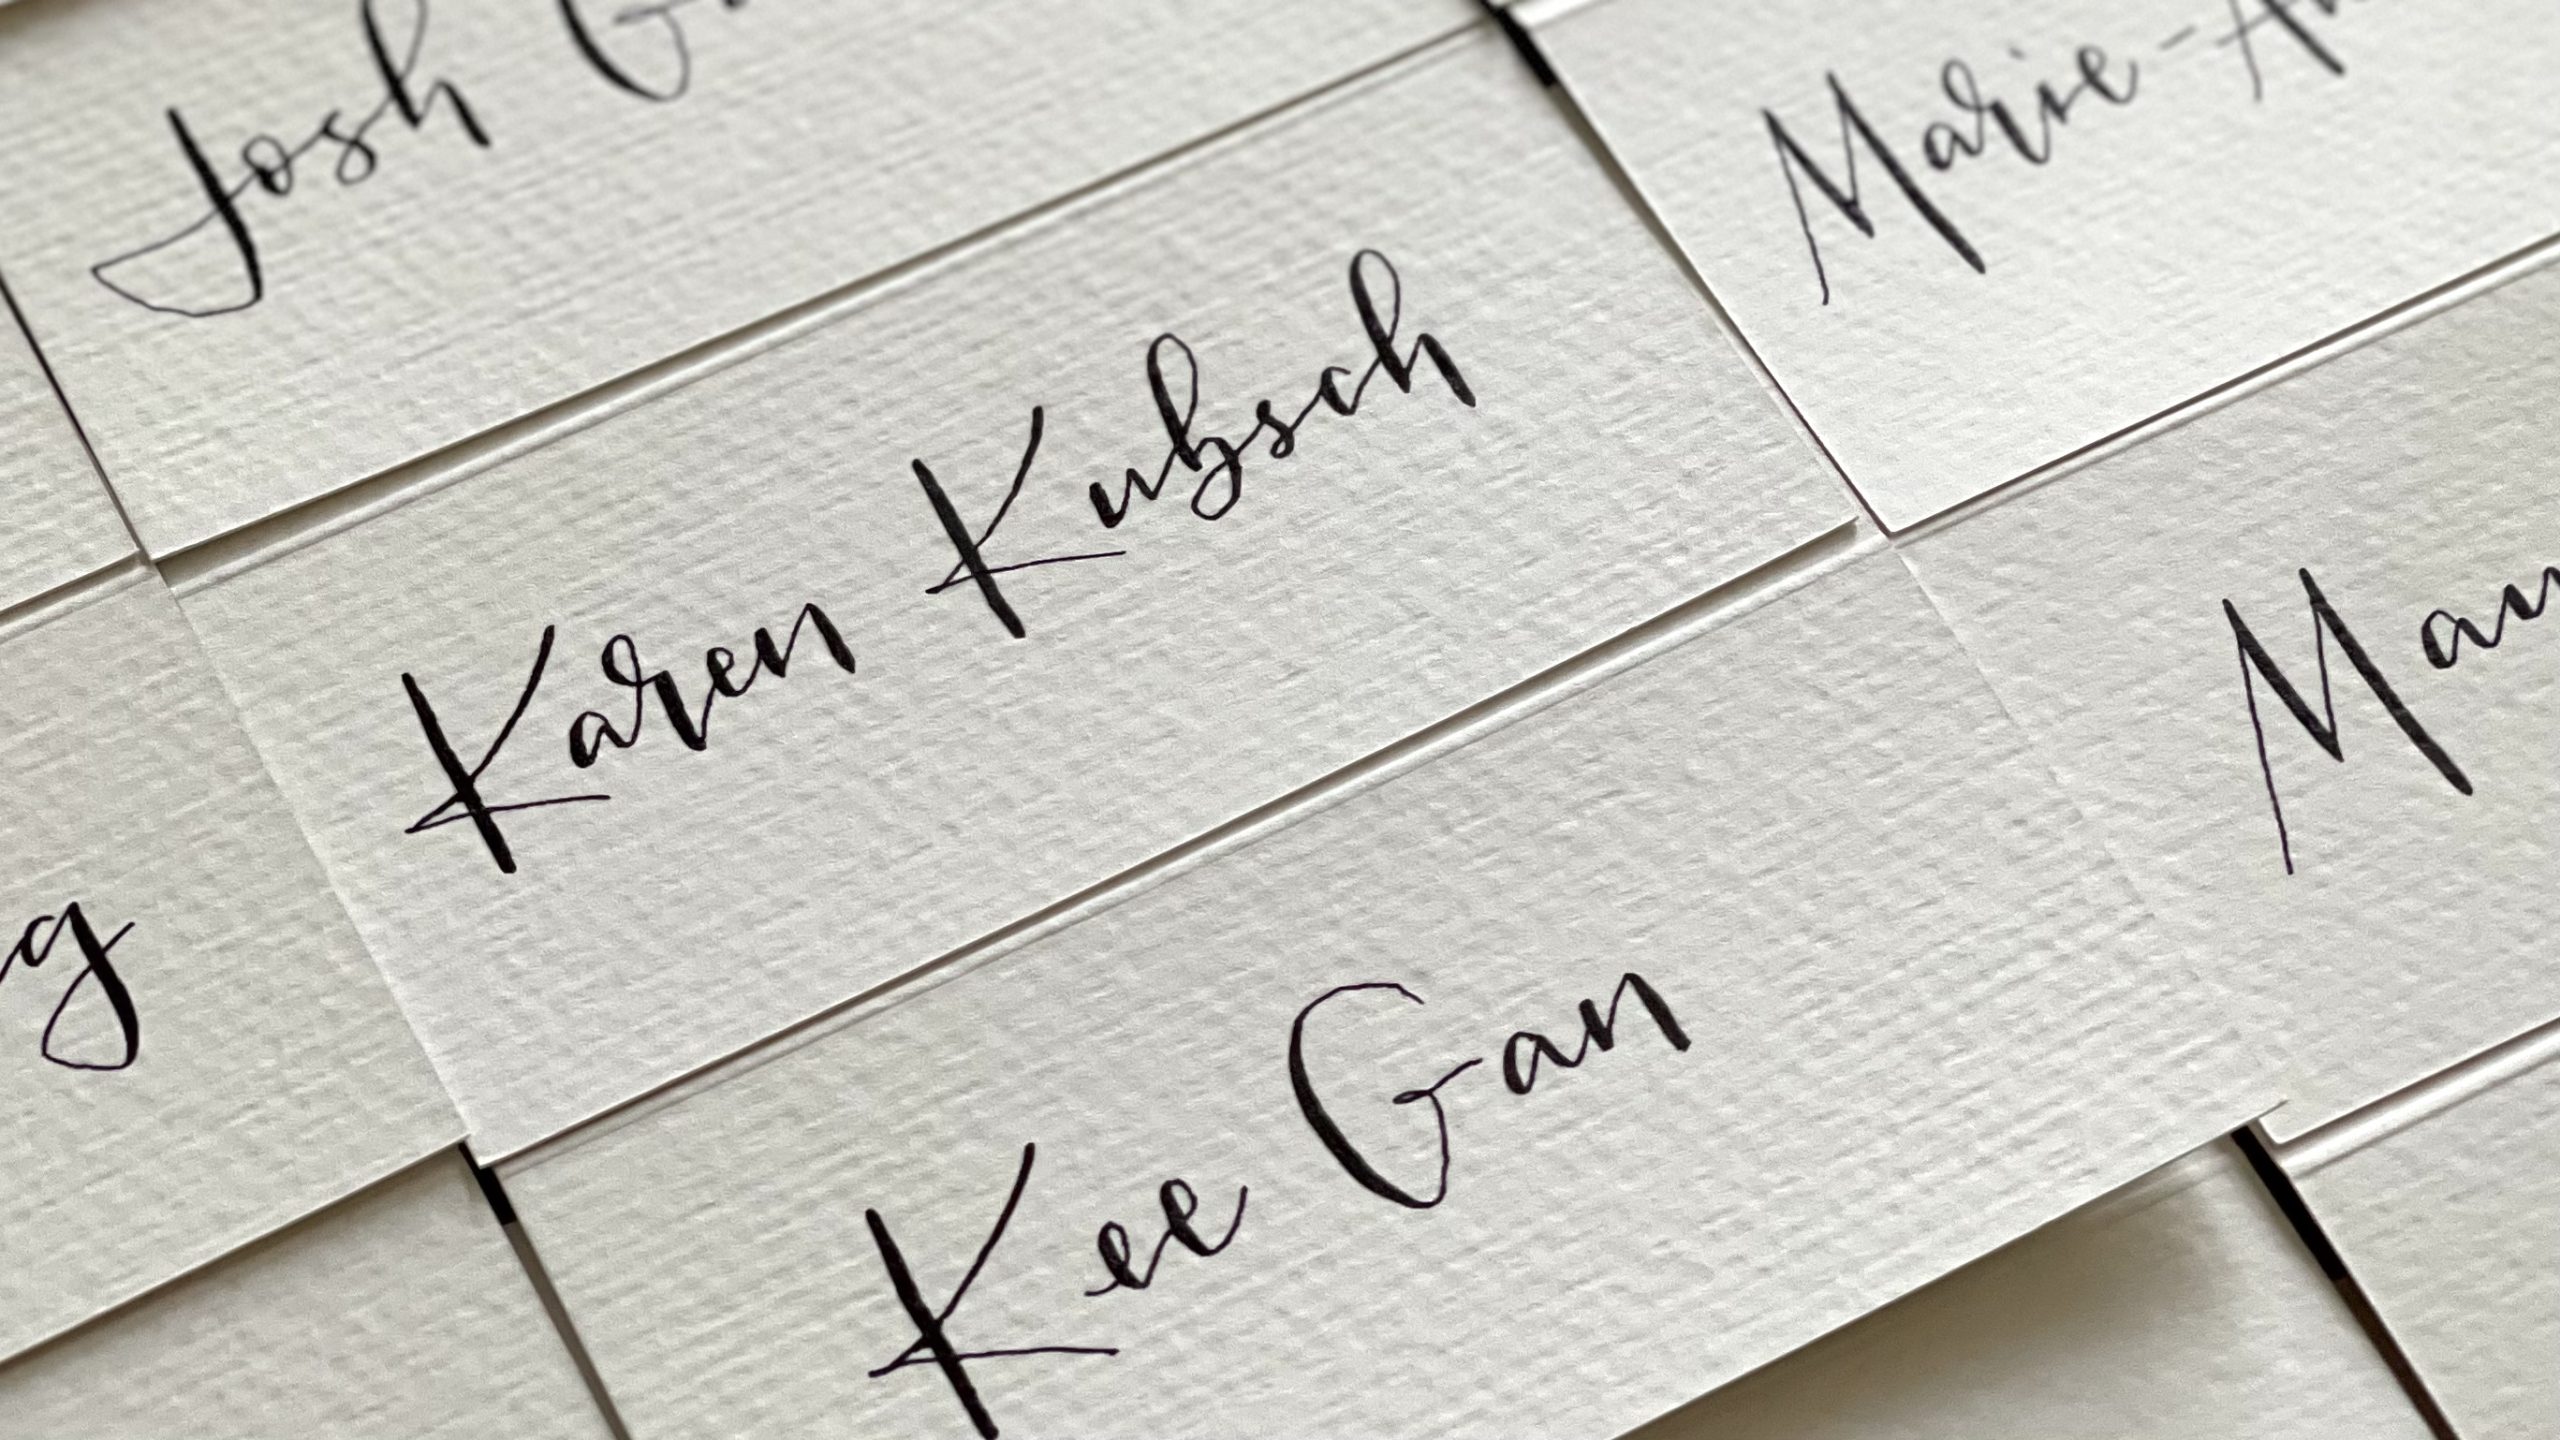 Josh G
Marie-An
Karen Kubsch
Ma
g
Kee Gan